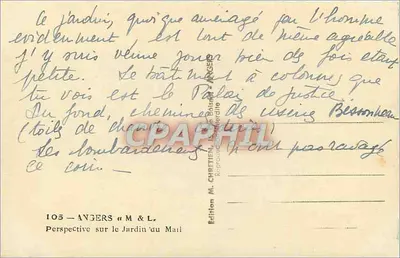 Ce jardin, quoique aménagé par l'homme
evidemment, est tout de même agréable
j'y suis venue jouer bien des fois etant
petite. Le bâtiment à colonnes que
tu vois est le Palais de Justice.
Au fond, cheminées des usines Bessonneau
(toile de
Les bombardements n'ont pas ravagé
ce coin.
CPARPHIL
Edition M. CHRETIEN
105 — ANGERS (M & L.
Perspective sur le Jardin du Mail